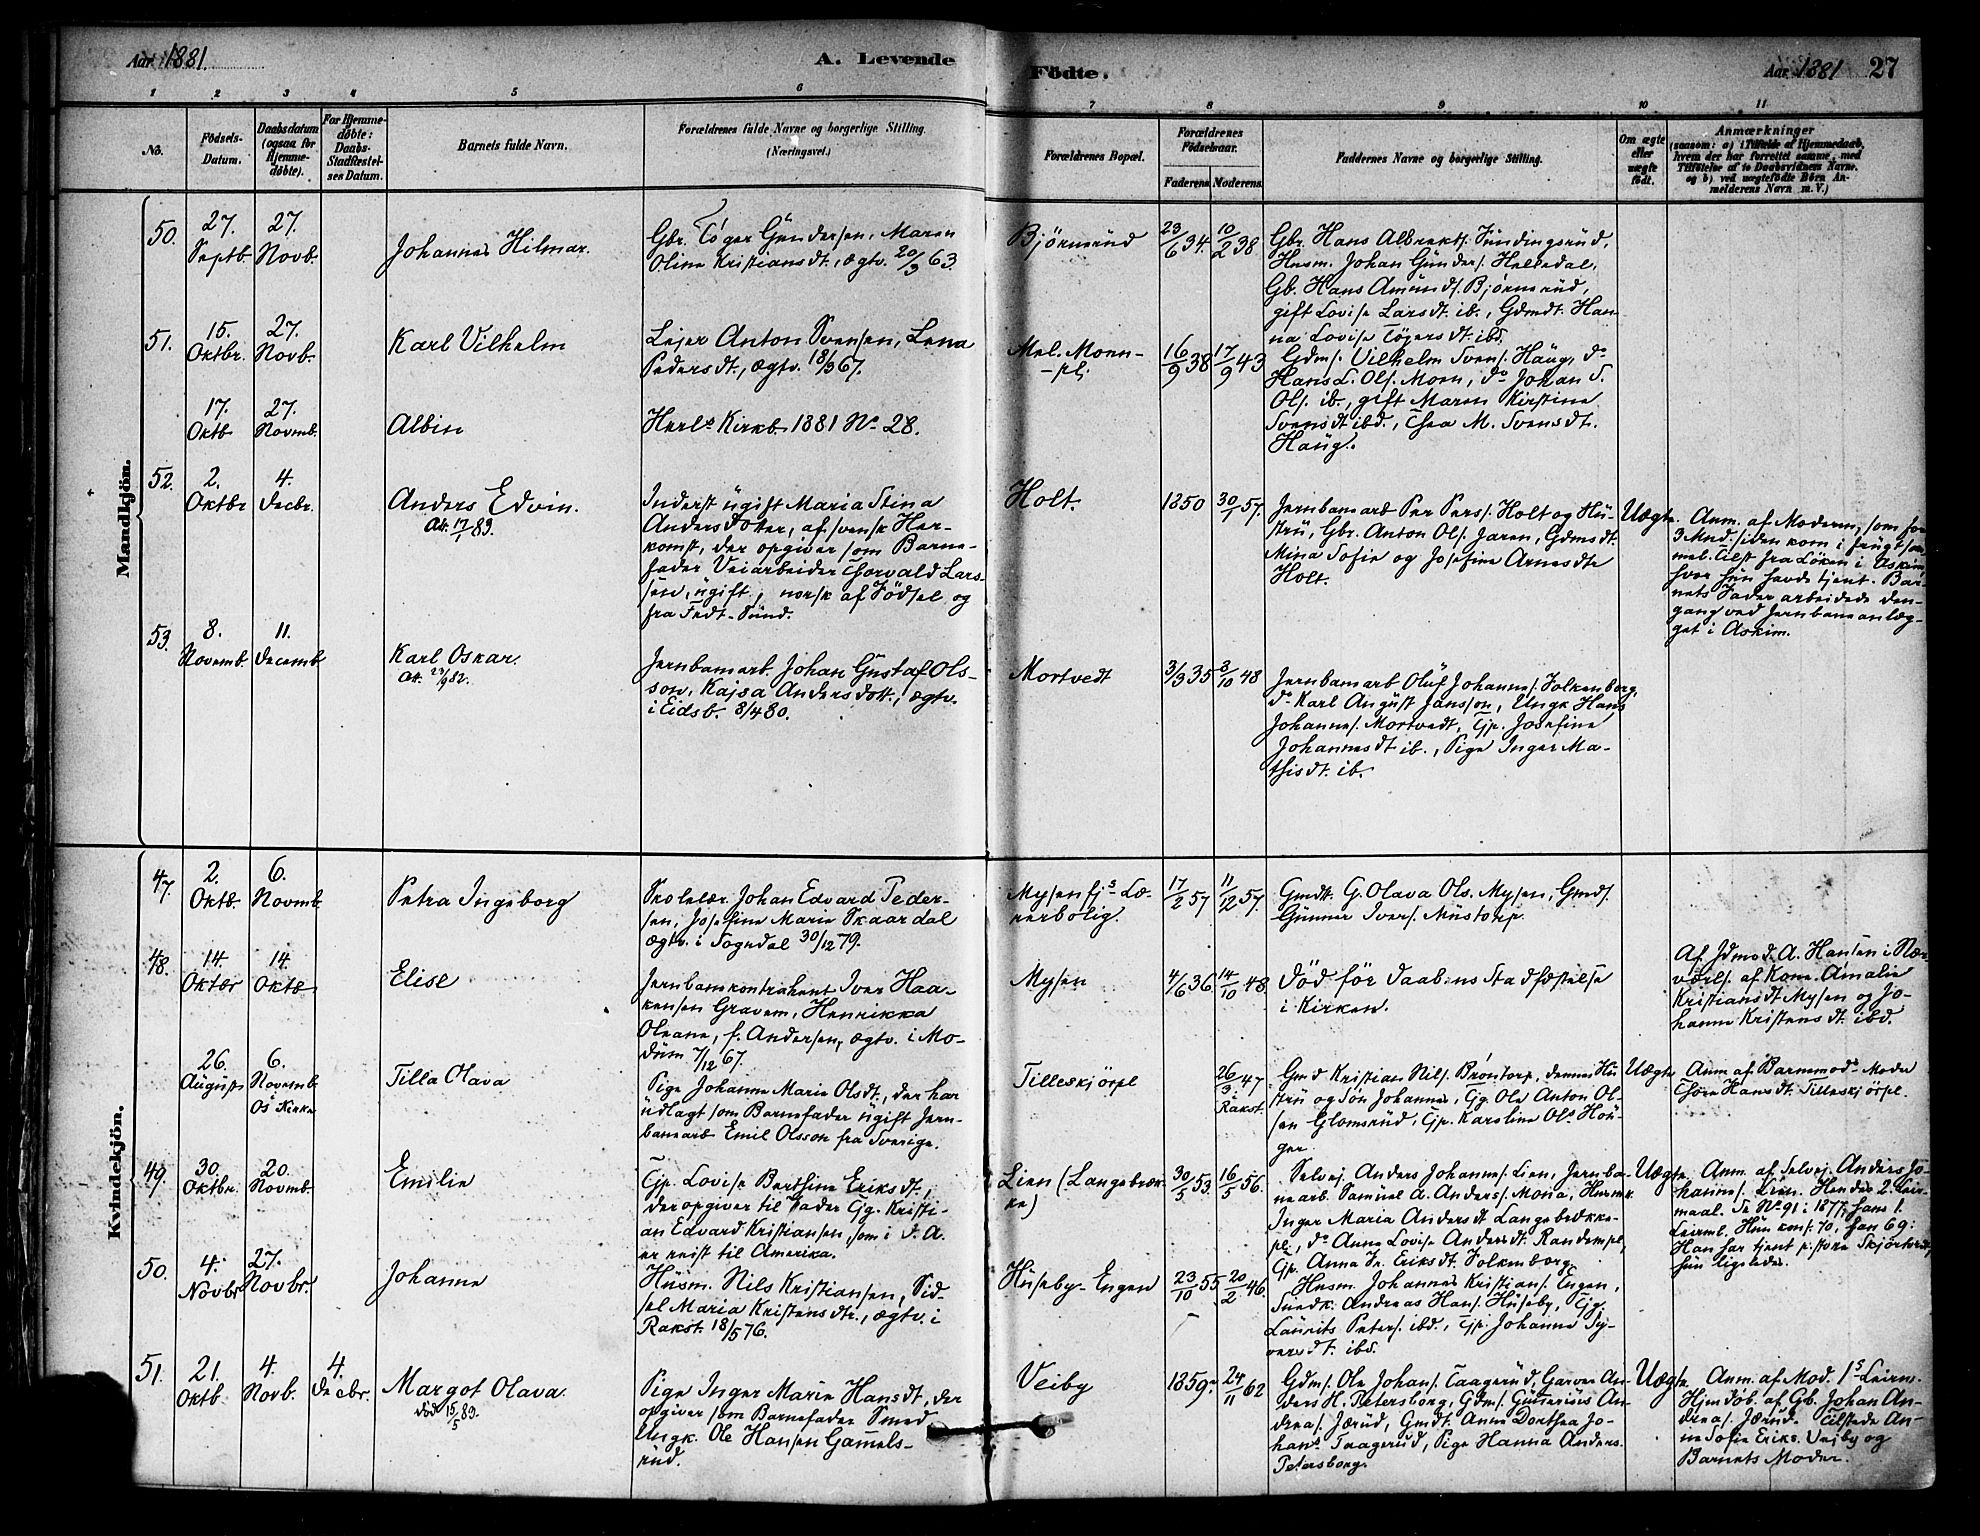 Aar 1881.
A. Levende
Födte.
Aar 1881
27
1 2 3 4 5 6 7 8 9 10 11
No.
Födsels-
Datum.
Daabsdatum
(ogsaa for
Hjemme-
døbte).
For Hjemme-
døbte:
Daabs-
Stadfæstel-
ses Datum.
Barnets fulde Navn.
Forældrenes fulde Navne og borgerlige Stilling.
(Næringsvei.)
Forældrenes Bopæl.
Forældrenes
Födselsaar.
Faderens Moderens
Faddernes Navne og borgerlige Stilling.
Om ægte
eller
uægte
født.
Anmærkninger
(saasom: a) i Tilfælde af Hjemmedaab,
hvem der har forrettet samme, med
Tilföielse af to Daabsvidners Navne,
og b) ved uægtefödte Börn An-
melderens Navn m. V.)
Mandkjön.
50.
27.
Septb.
27.
Novb.
Johannes Hilmar.
Gbr. Töger Gundersen, Maren
Oline Kristiansdt., ægtv. 20/3 63.
Bjørnerud
23/6 34.
10/2 38.
Gbr. Hans Albrekts. Sundingsrud,
Husm. Johan Gunders. Helledal,
Gb. Hans Amunds. Bjørnerud,
gift Lovise Larsdt. ib., Gdmdt. Han-
na Lovise Tögersdt. ibd.
51.
15.
Oktbr.
27.
Novb.
Karl Vilhelm
Lejer Anton Svensen, Lena
Pedersdt., ægtv. 18/3 67.
Mel. Moen-
-pl.
16/9 38
17/9 43
Gdms. Vilhelm Svens. Haug, do
Hans L. Ols. Moen, do Johan S.
Ols. ib., gift Maren Kirstine
Svensdt ibd., Thea M. Svensdt.
Haug.
17.
Oktb
27.
Novmb.
Albin
Herlo Kirkb. 1881 No 28.
52.
2.
Oktbr
4.
Decbr.
Anders Edvin.
Att. 17/1 89.
Inderst ugift Maria Stina
Anders Dotter, af svensk Her-
komst, der opgiver som Barne-
fader Veiarbeider Thorvald Lars-
sen, ugift, norsk af Födsel og
fra Fedt-Sund.
Holt.
1850
30/1 57.
Jernbanearb Per Pers. Holt og Hu-
stru, Gbr. Anton Ols. Jaren, Gdmsdt.
Mina Sofie og Josefine Arnesdtr
Holt.
Uægte.
Anm. af Moderen, som for
3 Mnd. siden kom i frugtsom-
mel. Tilst fra Löken i Askim
hvor hun havde tjent. Bar-
nets Fader arbeidede den-
gang ved Jernbaneanlæg-
get i Askim.
53.
8.
Novemb.
11.
Decemb
Karl Oskar.
Att. 27/9 82.
Jernbanearb. Johan Gustaf Ols-
son, Kajsa Andersdott., ægtv.
i Eidsb. 8/4 80.
Mortvedt
3/3 35
3/10 48
Jernbanearb Oluf Johannes. Folkenborg,
do Karl August Jansson, Ungk Hans
Johannes. Mortvedt, Tjp. Josefine
Johannesdt ib., Pige Inger Ma-
thisdt. ib.
Kvindekjön.
47.
2.
Oktb.
6.
Novmb
Petra Ingeborg
Skolelær. Johan Edvard Peder-
sen, Josefine Marie Skaardal
ægtv. i Sogndal 30/12 79.
Mysen fj.s Læ-
rerbolig.
17/2 57
11/12 57.
Gmdt. G. Olava Ols. Mysen, Gmds.
Gunner Ivers. Mustorp.
48.
14.
Oktbr
14.
Oktb
Elise
Jernbanekontrahent Iver Haa-
kensen Gravem, Henrikka
Oleane, f. Andersen, ægtv. i Mo-
dum 7/12 67.
Mysen
4/6 36.
14/10 48.
Död för Daabens Stadfæstelse
i Kirken.
Af Jdmod. A. Hansen i Nær-
værels. af Kone Amalie
Kristiansdt Mysen og Jo-
hanne Kristensdt. ibd.
26.
Augusts
6.
Novemb
Ös Kirke
Tilla Olava
Pige Johanne Marie Olsdt., der har
udlagt som Barnefader ugift Jern-
banearb Emil Olsson fra Sverige.
Tilleskjörpl
26/3 47
Rakst.
Gmd Kristian Nils. Brøntorp, dennes Hu-
stru og Sön Johannes, Tjg. Ole Anton Ol-
sen Glomsrud, Tjp. Karoline Ols Hou-
ger.
Uægte
Anm af Barnemods Moder
Thöra Hansdt. Tilleskjörpl.
49.
30.
Oktbr.
20.
Novmb.
Emilie
Tjp. Lovise Berthine Eriksdt.,
der opgiver til Fader Tjg. Kristi-
an Edvard Kristiansen, som i d. A.
er reist til Amerika.
Lien (Langebræk-
ke)
30/5 53.
16/5 56.
Selvej. Anders Johannes. Lien, Jernba-
nearb. Samuel A. Anders. Mona, Husmk
Inger Maria Andersdt Langebrække-
pl., do Anna Lovise Andersdt. Randempl,
Tjp. Anna Fr. Eriksdt. Folkenborg.
Uægte
Anm. af Selvej. Anders Jo-
hannes. Lien. Hendes 2. Leir-
maal. Se No 91 i 1877, hans 1.
Leirml. Hun konf. 70, han 69:
Han har tjent p. store Skjörtvedt,
hun ligeledes.
50.
4.
Novbr
27.
Novbr.
Johanne
Husm. Nils Kristiansen, Sid-
sel Maria Kristensdtr., ægtv. i
Rakst. 18/5 76.
Huseby-Engen
23/10 55
20/2 46.
Husm. Johannes Kristians. Engen,
Snedk. Andreas Hans. Huseby, Tjg.
Laurits Peters. ibd., Tjp. Johanne Sy-
versdt. ibd.
51.
21.
Oktb
4.
Novb.
4.
Decbr.
Margot Olava.
död 15/5 89.
Pige Inger Marie Hansdt, der
opgiver som Barnefader Smed
Ungk. Ole Hansen Gamels-
rud.
Veiby
1859.
24/11 62
Gdms. Ole Johans. Taagerud, Garver An-
ders H. Petersborg, Gdms. Gunerius An-
dreas. Jærud, Gmdt. Anne Dorthea Jo-
hans Taagerud, Pige Hanna Anders.
Petersborg.
Uægte
Anm. af Mod. 1s Leirm.
Hjmdöb. af Gb. Johan An-
dreas. Jærud. Tilstede An-
ne Sofie Eriks. Vejby og
Barnets Moder.